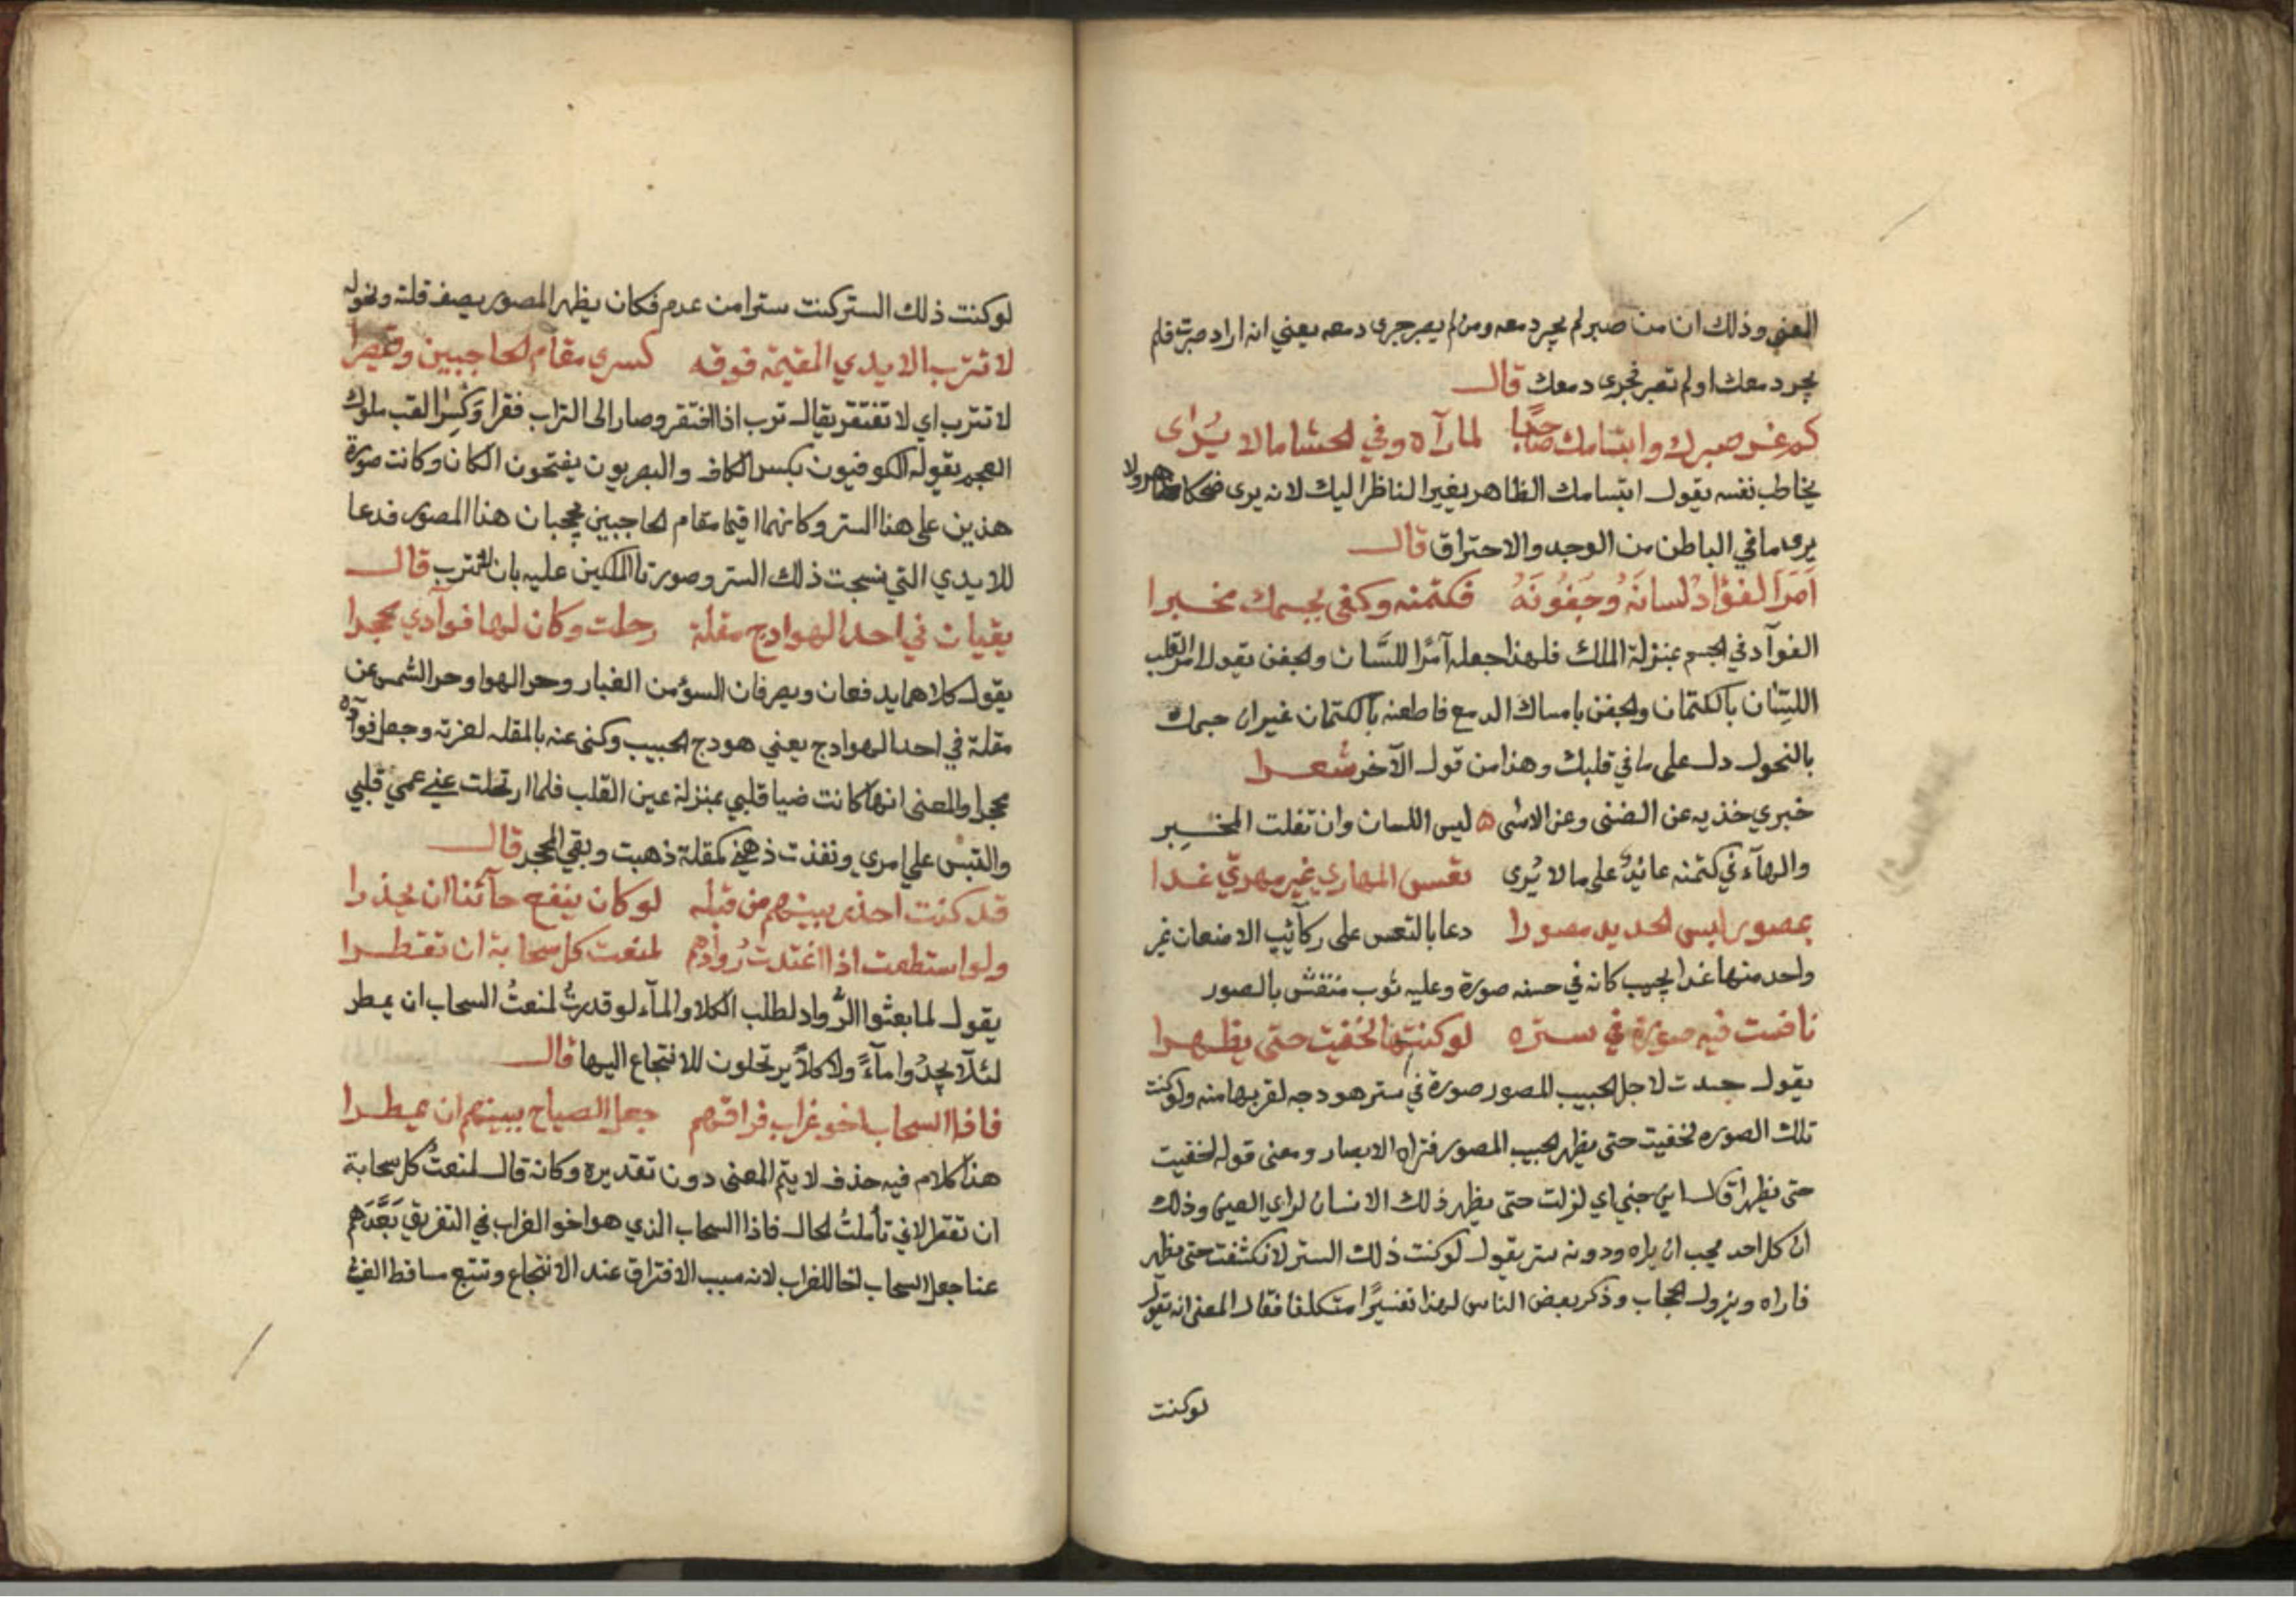 المعني وذلك ان من صبر لم يجر دمعه ومن لم يصبر جرى دمعه يعني انه اراد صبرت فلم
يجر دمعك او لم تصبر فجرى دمعك قال
كم غر صبرك وابتسامك صاحبا لما رآه وفي الحشا ما لا يُرَاى
يخاطب نفسه يقول ابتسامك الظاهر يغير الناظر اليك لانه يرى ضحكا ظاهر ولا
يرى ما في الباطن من الوجد والاحتراق قال
اَمَرَ الفؤاد لسانَهُ وجَفُونَهُ فكتمنه وكفى بجسمك مخبرا
الفوآد في الجسم بمنزلة الملك فلهذا جعله آمرًا للسَّان والجفن يقول امر القلب
اللسان بالكتمان والجفن بامساك الدمع فاطعنه بالكتمان غير ان جسمك
بالنحول دل على ما في قلبك وهذا من قول الآخر شعرا
خبري خذيه عن الضنى وعن الاسى ۵ ليس اللسان وان تفلت المخبِر
والهآء في كتمنه عائدٌ على ما لا يُرى تعس المهاري غير مهريّ غدا
بمصور لبس الحديد مصورا دعا بالتعس على ركآئب الاضعان غير
واحد منها غدا بحبيب كانه في حسنه صورة وعليه ثوب منقّش بالصور
نافست فيه صورة في ستره لو كنتها لخفيت حتى يظهرا
يقول حسدت لاجل الحبيب المصور صورة في ستر هودجه لقربها منه ولو كنت
تلك الصوره لخفيت حتى يظهر الحبيب المصور فتراه الابصار ومعنى قوله لخفيت
حتى يظهرا قال ابن جني اي لزلت حتى يظهر ذلك الانسان لراي العين وذلك
ان كل احد يحب ان يراه ودونه ستر يقول لو كنت ذلك الستر لانكشفت حتى يظهر
فاراه ويزول الحجاب وذكر بعض الناس لهذا تفسيرًا متكلفا فقال المعنى انه يقول
لوكنت
لو كنت ذلك الستر كنت سترا من عدم فكان يظهر المصور يصف قلته ونحوله
لا تترب الايدي المقيمة فوقه كسرى مقام الحاجبين وقيصرا
لا تترب اي لا تفتقر يقال ترب اذا افتقر وصار الى التراب فقرا وَكِسرا لقب ملوك
العجم يقوله الكوفيون بكسر الكاف والبصريون يفتحون الكان وكانت صورة
هذين على هذا الستر وكانهما اقيما مقام الحاجبين يحجبان هذا المصور فدعا
للايدي التي نسجت ذلك الستر وصورتا الملكين عليه بان لا تترب قال
يقيان في احد الهوادج مقلة رحلت وكان لها فوآدي محجرا
يقول كلاهما يدفعان ويصرفان السؤ من الغبار وحر الهوا وحر الشمس عن
مقلة في احد الهوادج يعني هودج الحبيب وكنى عنه بالمقله لعزته وجعل فوآده
محجرا والمعنى انها كانت ضيا قلبي بمنزلة عين القلب فلما ارتحلت عني عمي قلبي
والتبس علي امري ونفذت ذهني كمقلة ذهبت وبقي المحجر قال
قد كنت احذر بينهم من قبله لو كان ينفع حآئنا ان يحذرا
ولو استطعت اذا اغتدت رُوادهم لمنعت كل سحابة ان تقطرا
يقول لما بعثوا الرُواد لطلب الكلا والمآء لو قدرتُ لمنعتُ السحاب ان يمطر
لئلآ يجدُوا مآءً ولا كلاً يرتحلون للانتجاع اليها قال
فاذا السحاب اخو غراب فراقهم جعل الصياح ببينهم ان يمطرا
هذا كلام فيه حذف لا يتم المعنى دون تقديره وكانه قال لمنعتُ كل سحابة
ان تقطر لاني تأملتُ الحال فاذا السحاب الذي هو اخو الغراب في التفريق بَعَّدَهم
عنا جعل السحاب اخا للغراب لانه سبب الافتراق عند الانتجاع وتتبع ساقط الغيث